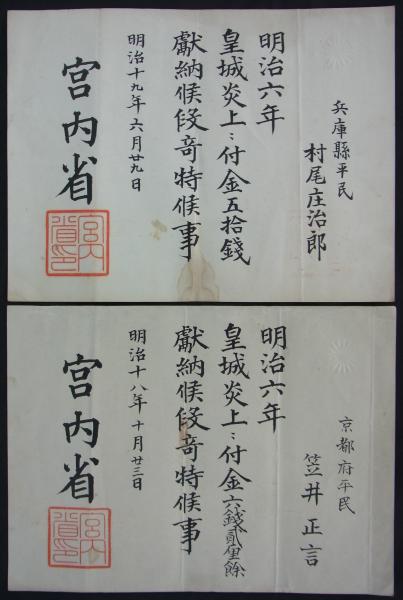 兵庫縣平民
村尾庄治郎
明治六年
皇城炎上ニ付金五拾錢
獻納候段奇特候事
明治十九年六月廿九日
宮内省
宮内省印
京都府平民
笠井正言
明治六年
皇城炎上ニ付金六錢貳厘餘
獻納候段奇特候事
明治十八年十月廿三日
宮内省
宮内省印